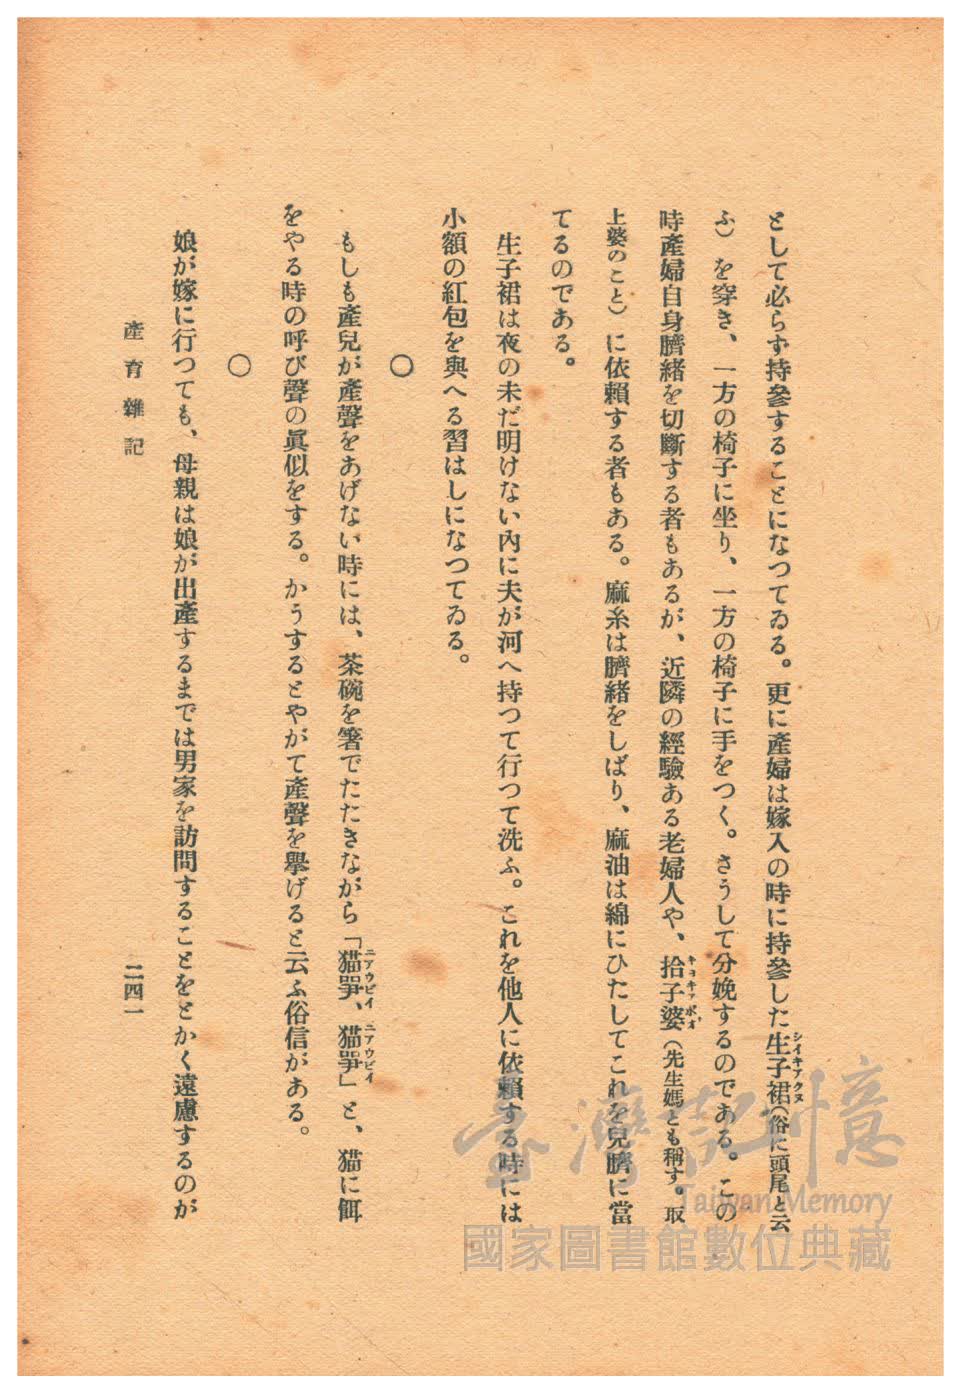 として必らず持參することになつてゐる。更に產婦は嫁入の時に持參した生子裙（俗に頭尾と云
ふ）を穿き、一方の椅子に坐り、一方の椅子に手をつく。さうして分娩するのである。この
時產婦自身臍緒を切斷する者もあるが、近隣の經驗ある老婦人や、拾子婆（先生媽とも稱す。取
上婆のこと）に依賴する者もある。麻糸は臍緒をしばり、麻油は綿にひたしてこれを兒臍に當
てるのである。
生子裙は夜の未だ明けない內に夫が河へ持つて行つて洗ふ。これを他人に依賴する時には
小額の紅包を與へる習はしになつてゐる。
〇
もしも產兒が產聲をあげない時には、茶碗を箸でたたきながら「猫、猫」と、猫に餌
をやる時の呼び聲の眞似をする。かうするとやがて產聲を擧げると云ふ俗信がある。
〇
娘が嫁に行つても、母親は娘が出產するまでは男家を訪問することをとかく遠慮するのが
產育雜記
二四一
シイキアクヌ
ニアウビイ
ニアウビイ
臺灣記憶
Taiwan Memory
國家圖書館數位典藏